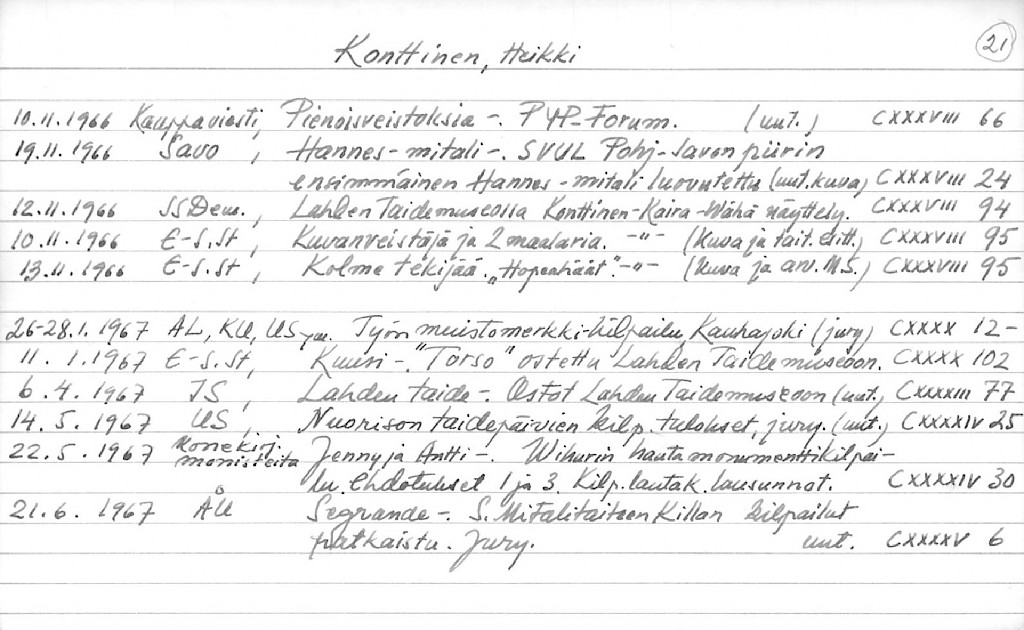 21
Konttinen, Heikki
10.11.1966 Kauppaviesti, Pienoisveistoksia -. PYP-Forum. (uut.) CXXXVIII 66
19.11.1966 Savo, Hannes-mitali -. SVUL Pohj-Savon piirin
ensimmäinen Hannes-mitali luovutettu (uut.kuva) CXXXVIII 24
12.11.1966 SSDem., Lahden Taidemuseossa Konttinen-Kaira-Wähä näyttely. CXXXVIII 94
10.11.1966 E-S.St, Kuvanveistäjä ja 2 maalaria. -"- (Kuva ja tait. esitt.) CXXXVIII 95
13.11.1966 E-S.St, Kolme tekijää. "Hopeahäät". -"- (kuva ja arv. M.S.) CXXXVIII 95
26-28.1.1967 AL, KU, US ym. Työn muistomerkki-kilpailu Kauhajoki (jury) CXXXX 12-
11.1.1967 E-S.St, Kuusi -. "Torso" ostettu Lahden Taidemuseoon. CXXXX 102
6.4.1967 IS, Lahden taide -. Ostot Lahden Taidemuseoon (uut.) CXXXXIII 77
14.5.1967 US, Nuorison taidepäivien kilp. tulokset, jury. (uut.) CXXXXIV 25
22.5.1967 konekirj. monisteita Jenny ja Antti -. Wihurin hautamonumenttikilpai-
lu. Ehdotukset 1 ja 3. Kilp.lautak. lausunnot. CXXXXIV 30
21.6.1967 ÅU Segrande -. S. Mitalitaiteen Killan kilpailut
ratkaistu. Jury. uut. CXXXXV 6